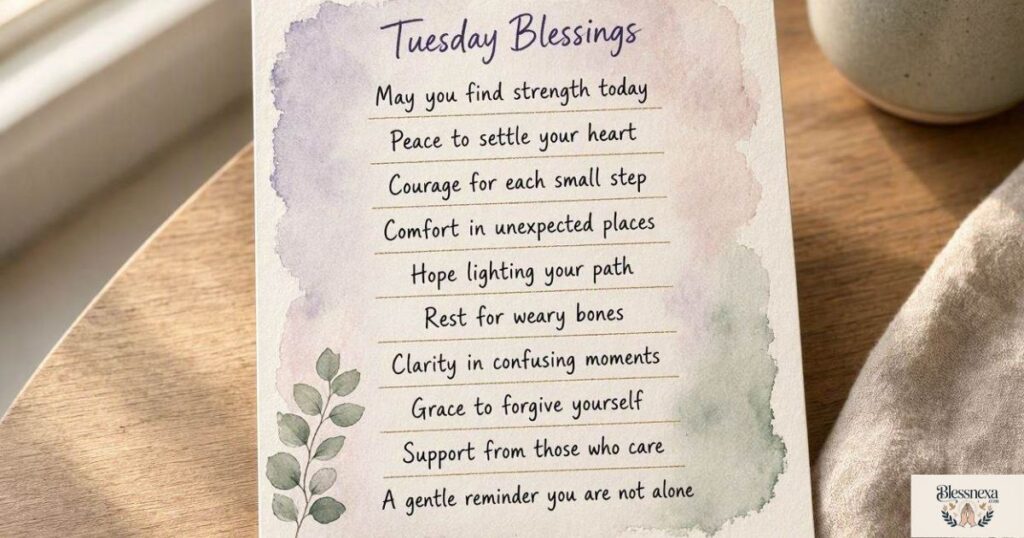 Tuesday Blessings
May you find strength today
Peace to settle your heart
Courage for each small step
Comfort in unexpected places
Hope lighting your path
Rest for weary bones
Clarity in confusing moments
Grace to forgive yourself
Support from those who care
A gentle reminder you are not alone
Blessnexa
.COM